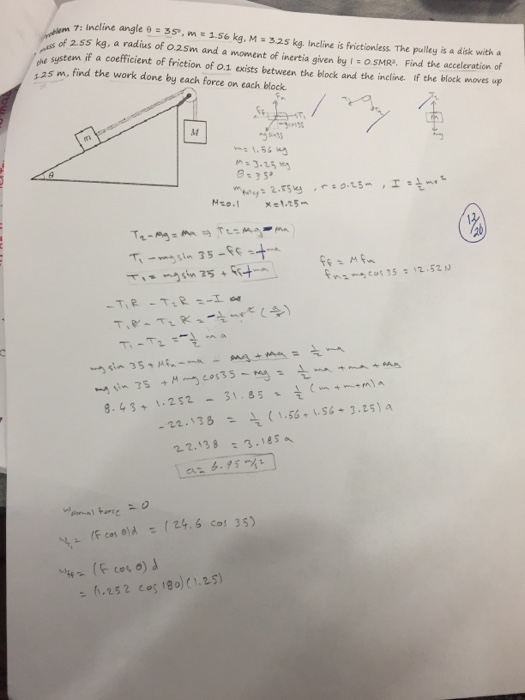 Problem 7: Incline angle θ = 35°, m = 1.56 kg, M = 3.25 kg. Incline is frictionless. The pulley is a disk with a
mass of 2.55 kg, a radius of 0.25m and a moment of inertia given by I = 0.5MR². Find the acceleration of
the system if a coefficient of friction of 0.1 exists between the block and the incline. If the block moves up
1.25 m, find the work done by each force on each block.
m
M
θ
m = 1.56 kg
M = 3.25 kg
θ = 35°
m pulley = 2.55 kg, r = 0.25m, I = ½mr²
M=0.1 x = 1.25m
12/20
T₂ - Mg = Ma ⇒ T₂ = Mg - Ma
T₁ - mg sin 35 - Ff = +ma
T₁ = mg sin 35 + Ff + ma
Ff = M fn
fn = mg cos 35 = 12.52 N
- T₁R - T₂R = -I α
T₁R - T₂R = -½mr² (a/r)
T₁ - T₂ = -½ ma
mg sin 35 + Mfn - ma - Mg + Ma = ½ ma
mg sin 35 + M mg cos35 - Mg = ½ ma + ma + Ma
8.43 + 1.252 - 31.85 = ½ (m + m + M)a
-22.138 = ½ (1.56 + 1.56 - 3.25) a
22.138 = 3.185 a
a = 6.95 m/s²
Normal force = 0
= (F cos θ)d = (24.6 cos 35)
= (F cos θ) d
= (1.252 cos 180)(1.25)